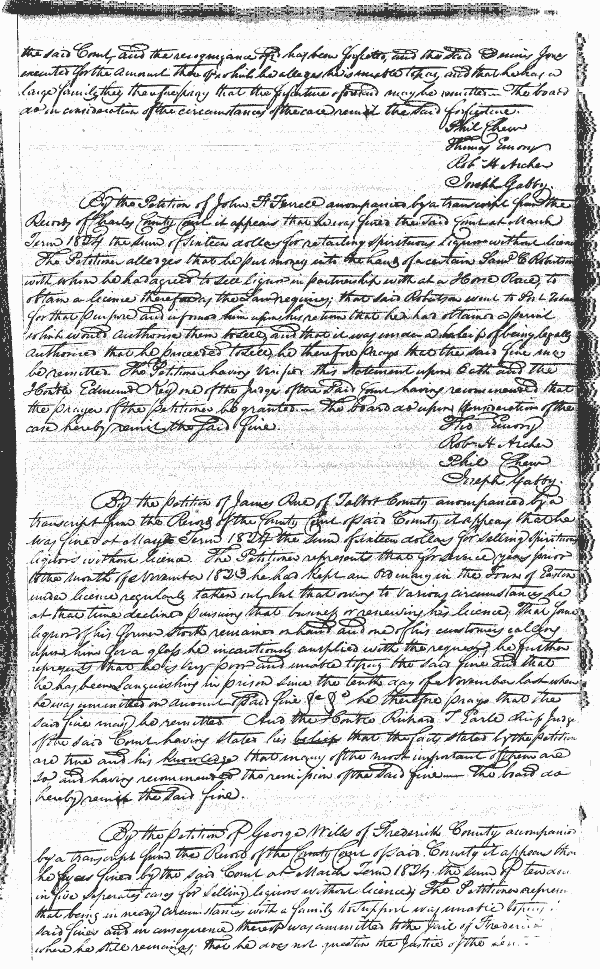 the said Court, and the recognizance has been forfeited, and the said Dennis Jones
executed for the amount thereof which he alleges he is unable to pay, and that he has a
large family, they therefore pray that the forfeiture aforesaid may be remitted — The board
do in consideration of the circumstances of the case remit the said forfeiture.
Phil Chew
Thomas Emory
Rob H Archer
Joseph Gabby
By the Petition of John F. Ferrell accompanied by a transcript from the
Records of Charles County Court it appears that he was fined the said Court at March
Term 1824 the sum of sixteen dollars for retailing spirituous liquor without license
The Petitioner alledges that he put money into the hands of a certain Saml C Robertson
with whom he had agreed to sell liquor in partnership with at a Horse Race, to
obtain a license therefor as the Law requires; that said Robertson went to Port Tobacco
for that purpose and informed him upon his return that he had obtained a permit
which would authorise them to sell, and that it was under a belief of being legally
authorised that he proceeded to sell, he therefore prays that the said fine may
be remitted. The Petitioner having verified this statement upon Oath and the
Honble Edmund Key one of the Judges of the said Court having recommended that
the prayer of the Petitioner be granted — The board do upon consideration of the
case hereby remit the said fine.
Thos Emory
Rob H Archer
Phil Chew
Joseph Gabby.
By the petition of James Rue of Talbot County accompanied by a
transcript from the Record of the County Court of said County it appears that he
was fined at May Term 1824 the sum of sixteen dollars for selling spirituous
liquors without license. The Petitioner represents that for several years prior
to the month of November 1823 he had kept an Ordinary in the Town of Easton
under licence regularly taken out but that owing to various circumstances he
at that time declined pursuing that business or renewing his licence; That some
liquor of his former stock remained on hand and one of his customers calling
upon him for a glass he incautiously complied with the request, he further
represents that he is very poor and unable to pay the said fine and that
he has been languishing in prison since the tenth day of November last when
he was committed on account of said fine &c &c he therefore prays that the
said fine may be remitted And the Honble Richard T Earle chief Judge
of the said Court having stated his belief that the facts stated by the petition
are true and his knowledge that many of the most important of them are
so and having recommended the remission of the said fine — The board do
hereby remit the said fine.
By the petition of George Wills of Frederick County accompanied
by a transcript from the Record of the County Court of said County it appears that
he was fined by the said Court at March Term 1824 the sum of
in five seperate cases for selling liquors without licence, The Petitioner represents
that being in needy circumstances with a family to support was unable to pay
said fines and in consequence thereof was committed to the Jail of Frederick
where he still remains; that he does not question the Justice of the